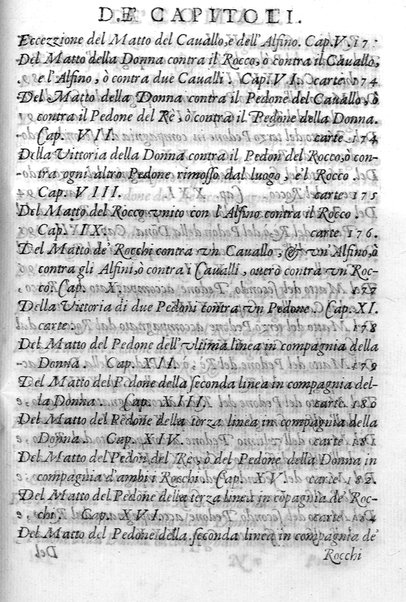 DE CAPITOLI.
Eccezzione del Matto del Cauallo, e dell'Alfino. Cap. V. 17
Del Matto della Donna contra il Rocco, ò contra il Cauallo,
e l'Alfino, ò contra due Caualli. Cap. VI. carte 174
Del Matto della Donna contra il Pedone del Cauallo, ò
contra il Pedone del Rè, ò contra il Pedone della Donna.
Cap. VII. carte 174
Della Vittoria della Donna contra il Pedon del Rocco, ò con-
tra ogni altro Pedone rimosso dal luogo, e'l Rocco
Cap. VIII. carte 175
Del Matto del Rocco vnito con l'Alfino contra il Rocco
Cap. IX. carte 176.
Del Matto de' Rocchi contra vn Cauallo, & vn'Alfino, ò
contra gli Alfini, ò contra i Caualli, ouerò contra vn Roc-
co, Cap. X. 177
Della Vittoria di due Pedoni contra vn Pedone. Cap. XI.
carte 178
Del Matto del Pedone dell'vltima linea in compagnia della
Donna. Cap. XII. 179
Del Matto del Pedone della seconda linea in compagnia del-
la Donna. Cap. XIII. carte 180
Del Matto del Pedone della terza linea in compagnia della
Donna. Cap. XIV. carte 181
Del Matto del Pedon del Re, ò del Pedone della Donna in
compagnia d'ambi i Rocchi Cap. XV. carte 182.
Del Matto del Pedone della terza linea in cōpagnia de' Roc-
chi. Cap. XVI. carte 184
Del Matto del Pedone della seconda linea in compagnia de'
Del Rocchi